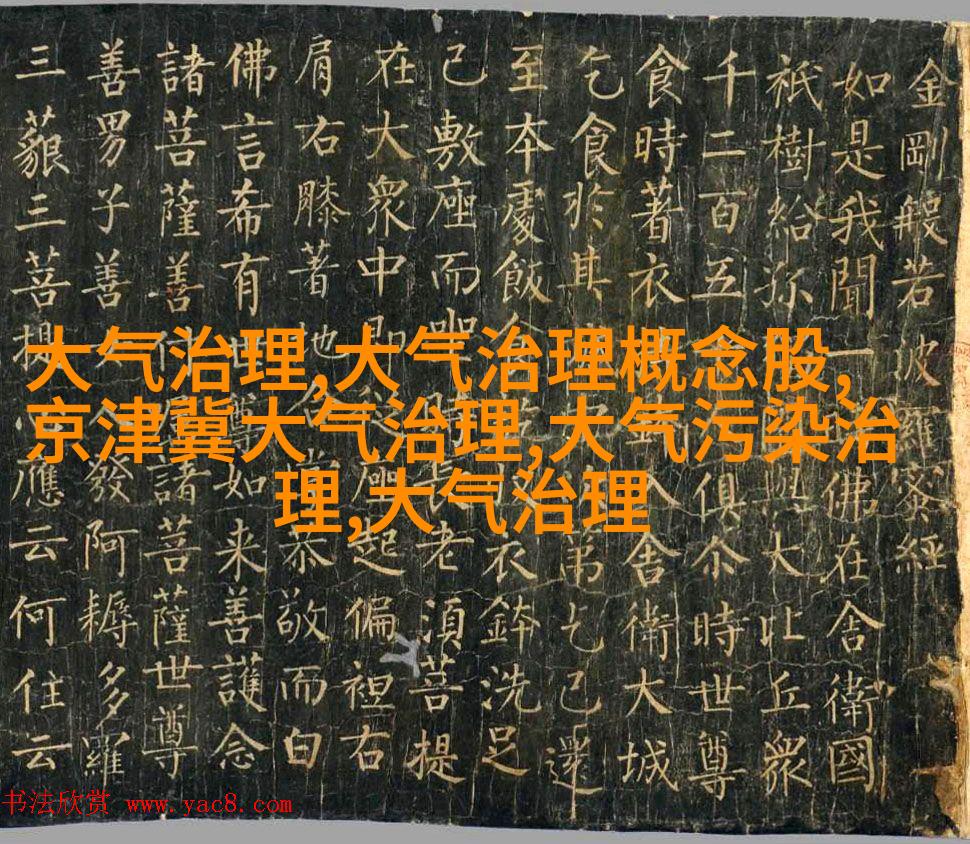 金剛般若波羅蜜經
如是我聞一佛在舍衛國
祇樹給孤與大比丘衆
千二百五俱尒時世尊
食時著衣入舍衛大城
乞食於其第乞已還
至本處飯食衣鉢洗足
已敷座而坐時長老須菩提
在大衆中即從座起偏袒右
肩右膝著地合掌恭敬而白
佛言希有世尊如来善護念
諸菩薩善付諸菩薩世尊
善男子善發阿耨多羅
三藐三菩提應云何住云
大气治理,大气治理概念股,
京津冀大气治理,大气污染治
理,大气治理
书法欣赏 www.yac8.com